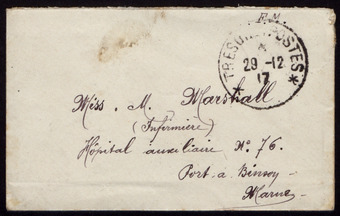 F.M.
TRESOR ET POSTES
*
29-12
17
*
Miss. M. Marshall.
(Infermière)
Hôpital auxiliaire No. 76.
Port-à-Binson
Marne